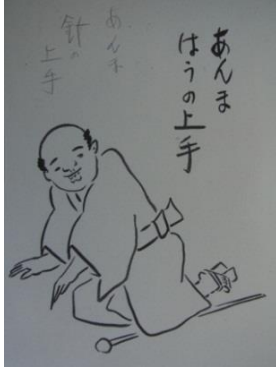 あんま
はうの上手
あんま
針の
上手